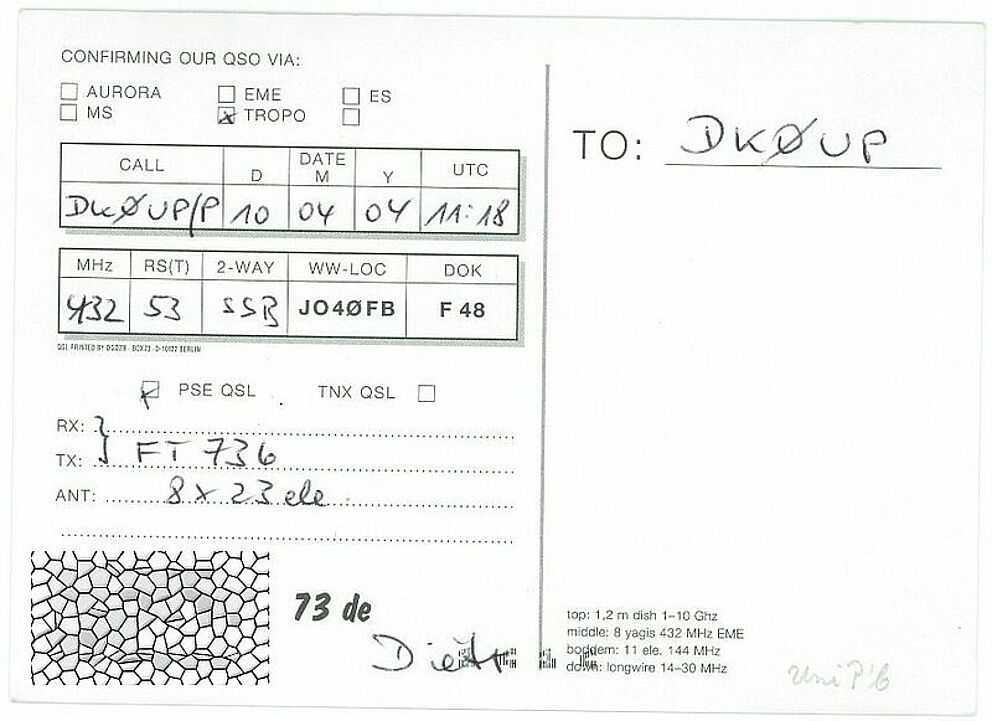 CONFIRMING OUR QSO VIA:
AURORA EME ES
MS TROPO
CALL D DATE M Y UTC
DKØUP/P 10 04 04 11:18
MHz RS(T) 2-WAY WW-LOC DOK
432 53 SSB JO4ØFB F 48
QSL PRINTED BY DG0ZB - BOX73 - D-10122 BERLIN
PSE QSL TNX QSL
RX:
TX: FT 736
ANT: 8 x 23 ele
73 de
Dieter
TO: DKØUP
top: 1,2 m dish 1–10 Ghz
middle: 8 yagis 432 MHz EME
boddem: 11 ele. 144 MHz
down: longwire 14–30 MHz